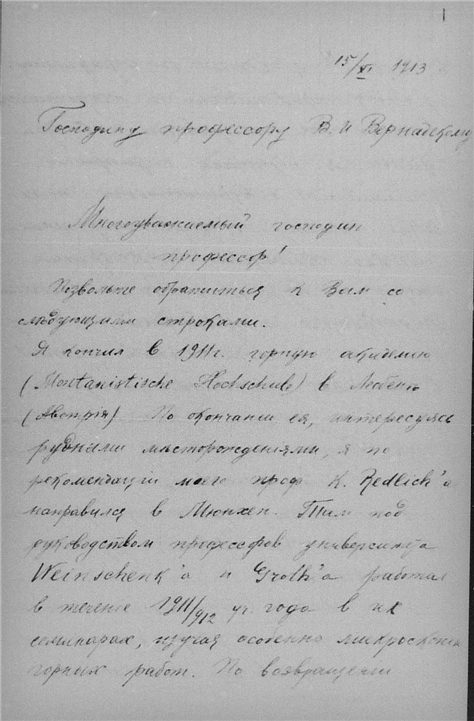 1
15/XI 1913
Господину профессору В. И Вернадскому
Многоуважаемый господин
профессор!
Позвольте обратиться к Вам со
следующими строками.
Я кончил в 1911 г. горную академию
(Montanistische Hochschule) в Леобене
(Австрія) По окончании ея, интересуясь
рудными мѣсторожденіями, я по
рекомендаціи моего проф K. Redlich'а
направился в Мюнхен. Там под
руководством профессоров университета
Weinschenk'а и Groth'а работал
в теченіе 1911/912 уч. года в их
семинарах, изучая особенно
горных работ. По возвращеніи